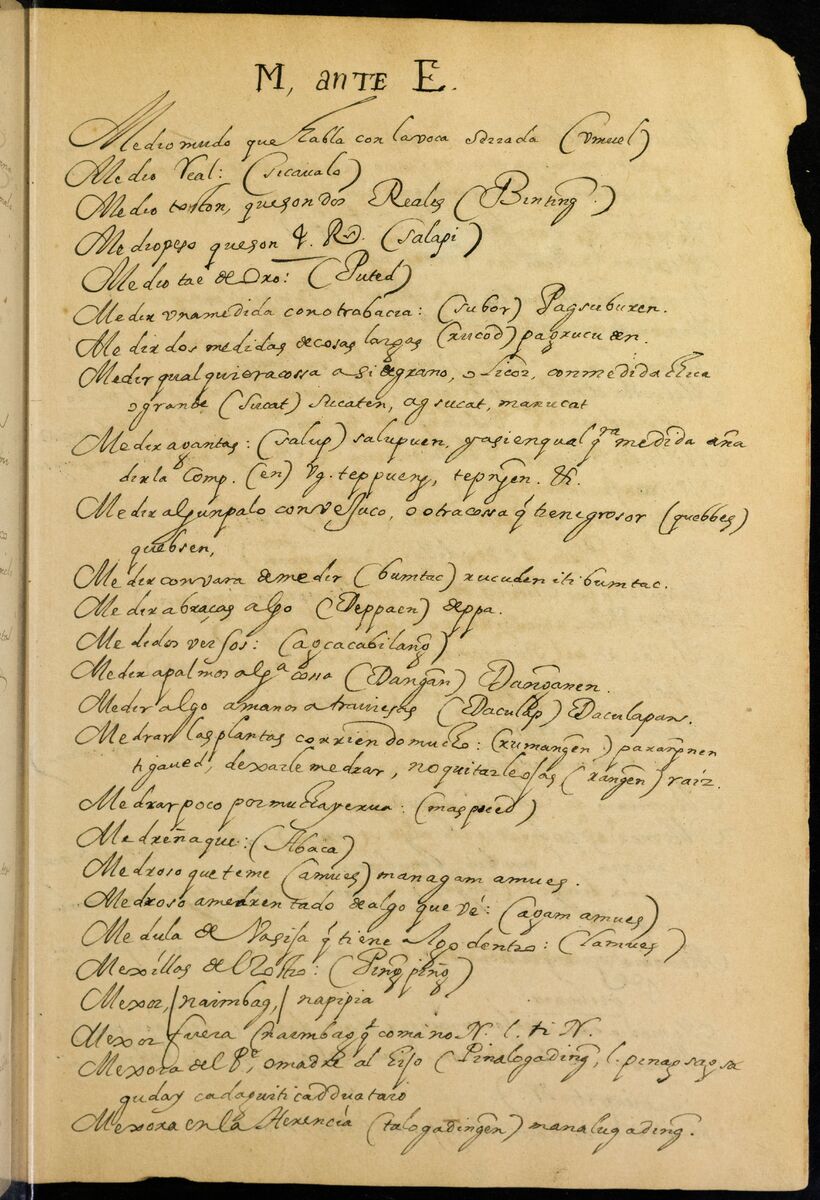 M, ante E.
Medio mudo que habla con la voca serrada (vmuel)
Medio Real: (sicavalo)
Medio toston, que son dos Reales (Binting̃.)
Medio peso que son 4. Rs. (Salapi)
Medio tae de Oro: (Puted)
Medir vna medida con otra bacia: (subor) Pagsuburen.
Medir dos medidas de cosas largas (rucod) pagrucuden.
Medir qualquiera cossa asi de grano, o licor, con medida chica
o grande (sucat) sucaten, agsucat, manucat
Medir a gantas: (salup) salupuen, y asi en qual qra medida aña
dirla Comp. (en) vg. teppuen, . &.
Medir algun palo con vejuco, o otra cossa q̃ tiene grosor (quebbes)
quebsen,
Medir con vara de medir (bumtac) rucuden iti bumtac.
Medir a braças algo (Deppaen) deppa.
Medidos versos: (agcacabilang̃)
Medir a palmos alga cossa (Dang̃an) Dang̃anen.
Medir algo a manos atraviesas (Daculap) Daculapans.
Medrar las plantas corriendo mucho: (rumang̃en.)
ti gaued, dexarle medrar, no quitarle ojas (rang̃en) raiz.
Medrar poco por mucha yerua: (maspoced)
Medreñaque: (Abaca)
Medroso que teme (amues) managam amues.
Medroso amedrentado de algo que vé: (agam amues)
Medula de Vasija q̃ tiene algo dentro: (lamues)
Mexillas del Rostro: (Ping̃ping̃)
Mexor, /naimbag,/ napipia
Mexor fuera (naimbag q̃ coma no N. l. ti N.
Mexora del Pe, o madre al hijo (Pinalogading̃, l. pinagsagsa
guday cadaguiti
Mexora en la Herencia (talogading̃en) manalugading̃.